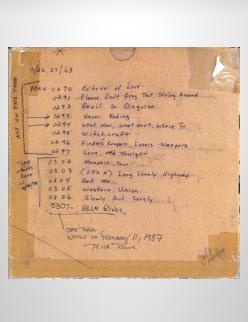 5/26,27/63
NOT ON THIS TAPE
PPA4 0290 Echoes of Love
0291 Please, Don't Drag That String Around
0292 Devil In Disguise
0293 Never Ending
0294 What Now, What Next, Where To
0295 Witchcraft
0296 Finders Keepers, Losers Weepers
0297 Love Me Tonight
0302 Memphis, Tenn
0303 (It's A) Long Lonely Highway
0304 Ask Me
0305 Western Union
0306 Slowly But Surely
0307 Blue River
one take
noted on February 11, 1987
Rick Rowe